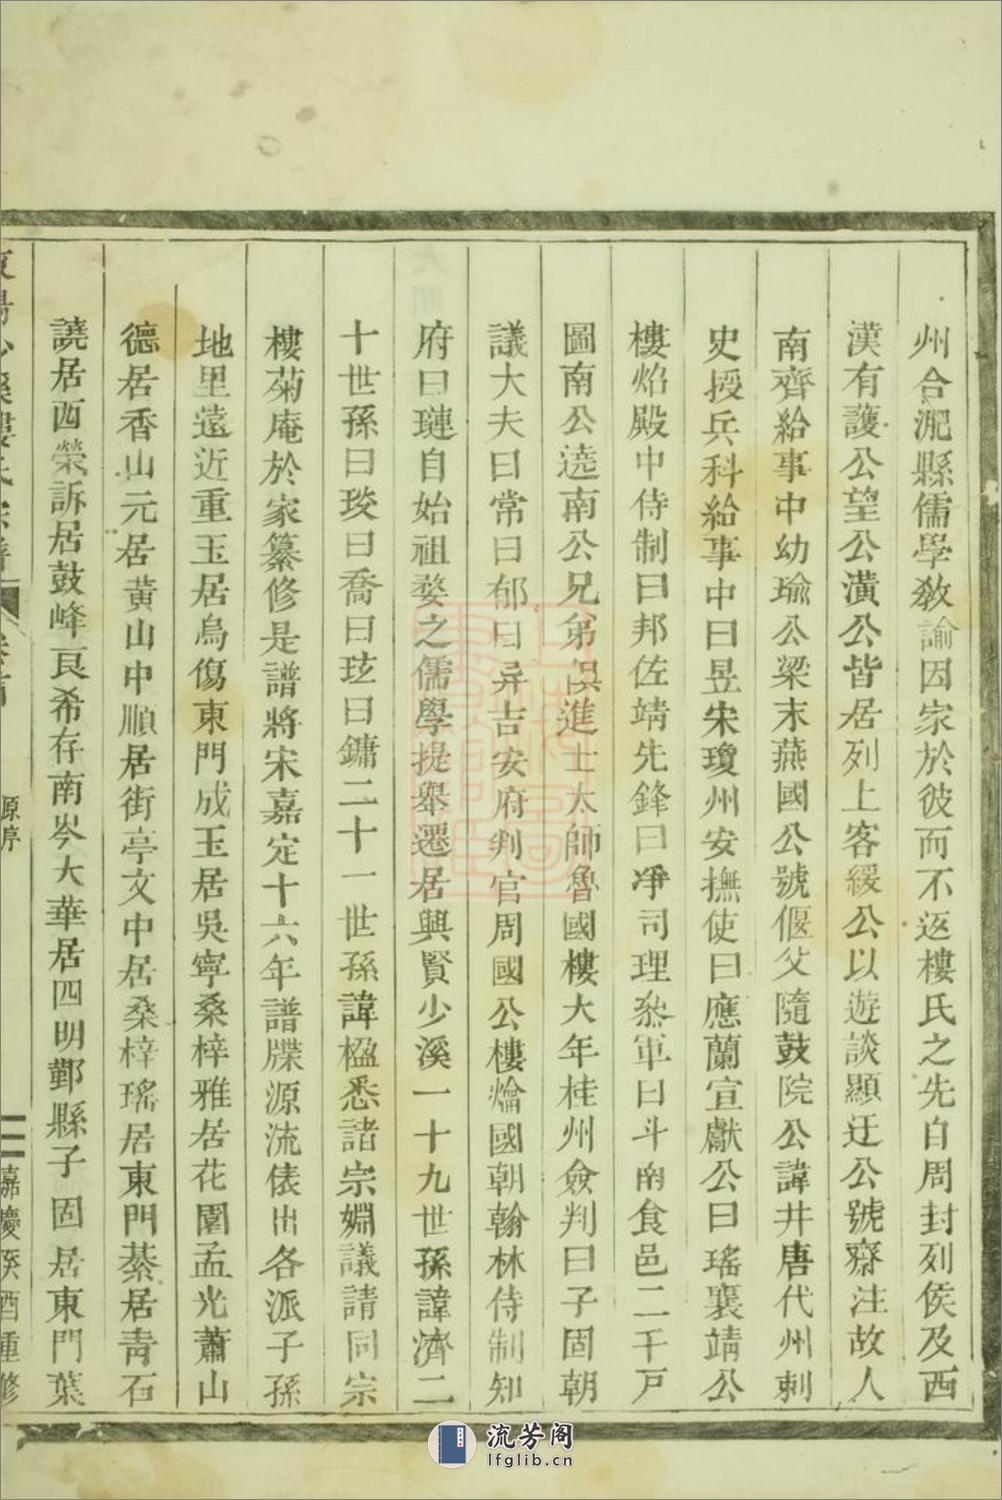 州合淝縣儒學教諭因家於彼而不返樓氏之先自周封列侯及西
漢有護公望公潢公皆居列上客緩公以遊談顯迂公號齋注故人
南齊給事中幼瑜公梁末燕國公號偃父隨鼓院公諱井唐代州刺
史授兵科給事中曰昱宋瓊州安撫使曰應蘭宣獻公曰瑤襄靖公
樓焰殿中侍制曰邦佐靖先鋒曰凈司理叅軍曰斗南食邑二千戸
圖南公遶南公兄弟俱進士太師魯國樓大年桂州僉判曰子固朝
議大夫曰常曰郁曰异吉安府判官周國公樓爚國朝翰林侍制知
府曰璉自始祖婺之儒學提舉遷居興賢少溪一十九世孫諱濟二
十世孫曰琰曰喬曰玹曰鏞二十一世孫諱楹悉諸宗婣議請同宗
樓菊庵於家纂修是譜將宋嘉定十六年譜牒源流俵出各派子孫
地里遠近重玉居烏傷東門成玉居吳寧桑梓雅居花園孟光蕭山
德居香山元居黃山中順居街亭文中居桑梓瑤居東門綦居青石
譊居西榮訴居鼓峰良希存南岑大華居四明鄞縣子固居東門葉
少溪樓氏宗譜 卷首 原序 二 嘉慶癸酉重修
流芳阁
lfglib.cn